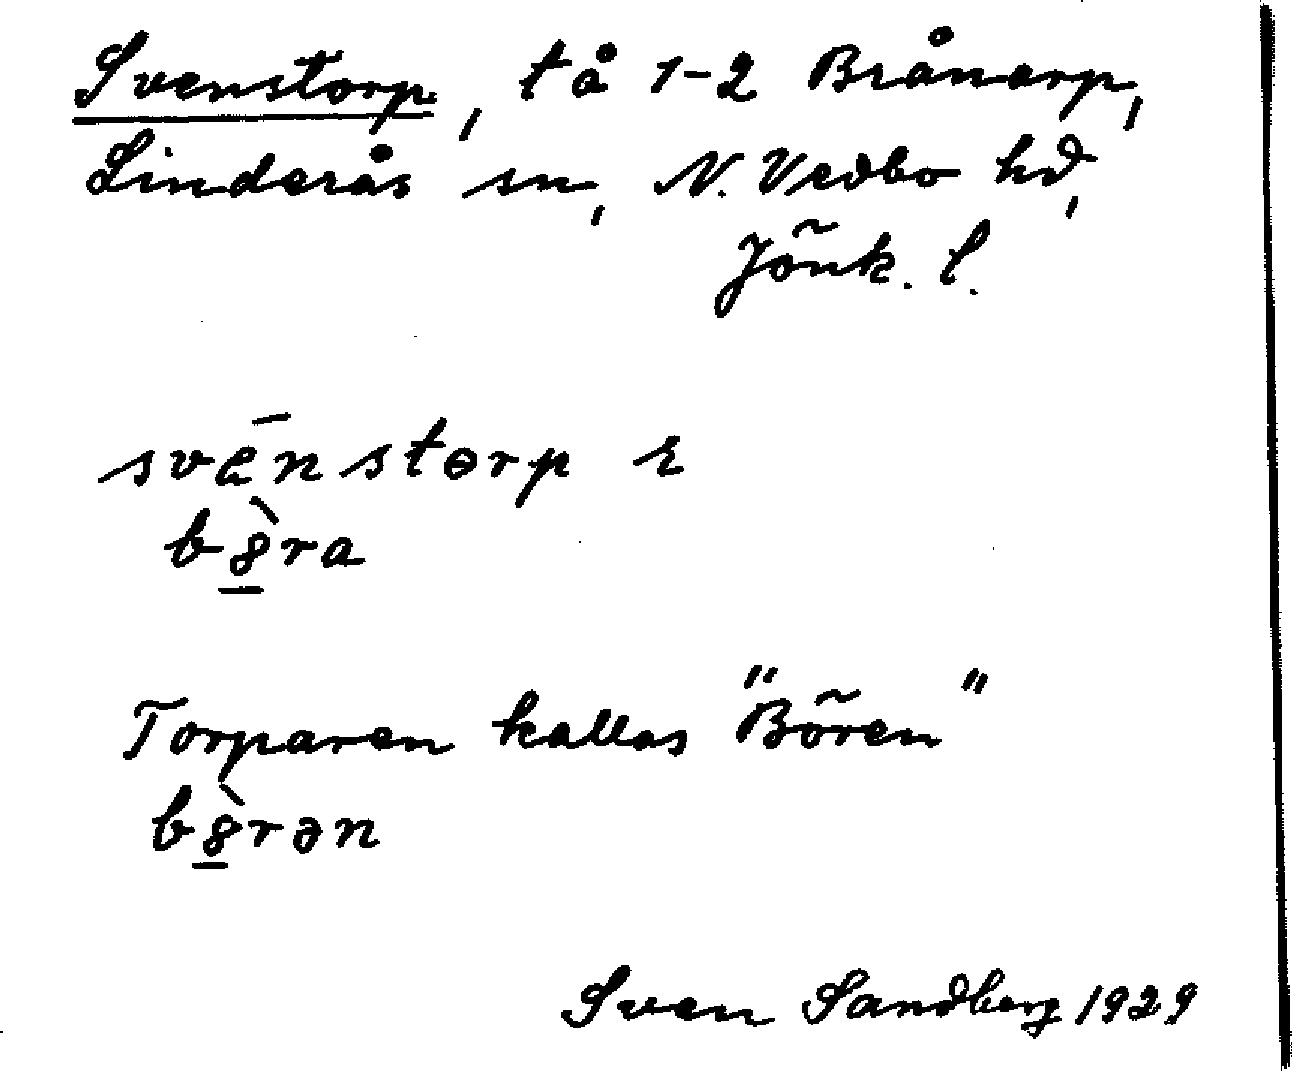 Svenstorp, tå 1-2 Brånarp,
Linderås sn, N. Vedbo hd,
Jönk. l.
svǟnstɵrp ɛ
bȣ̱̀ra
Torparen kallas "Bören"
bȣ̱̀rən
Sven Sandberg 1929